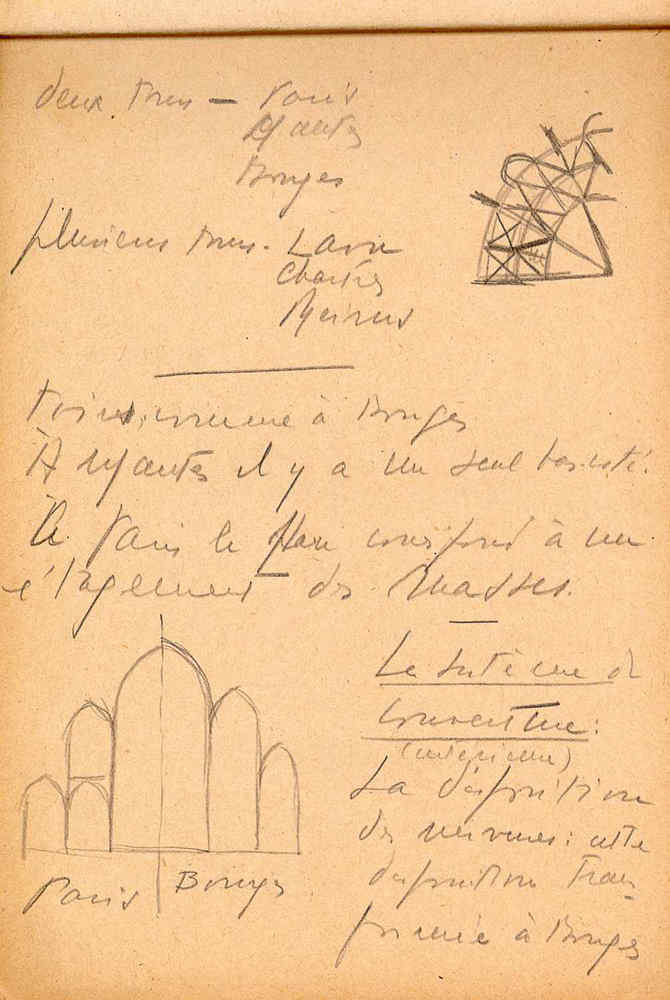 deux tours — Paris
Mantes
Bourges
plusieurs tours - Laon
Chartres
Reims
à Bourges
À Mantes il y a un seul bas-côté.
À Paris le plan correspond à un
étagement des masses.
Le système de
couverture :
(intérieur)
La disposition
des nervures : cette
disposition trans-
formée à Bourges
Paris Bourges